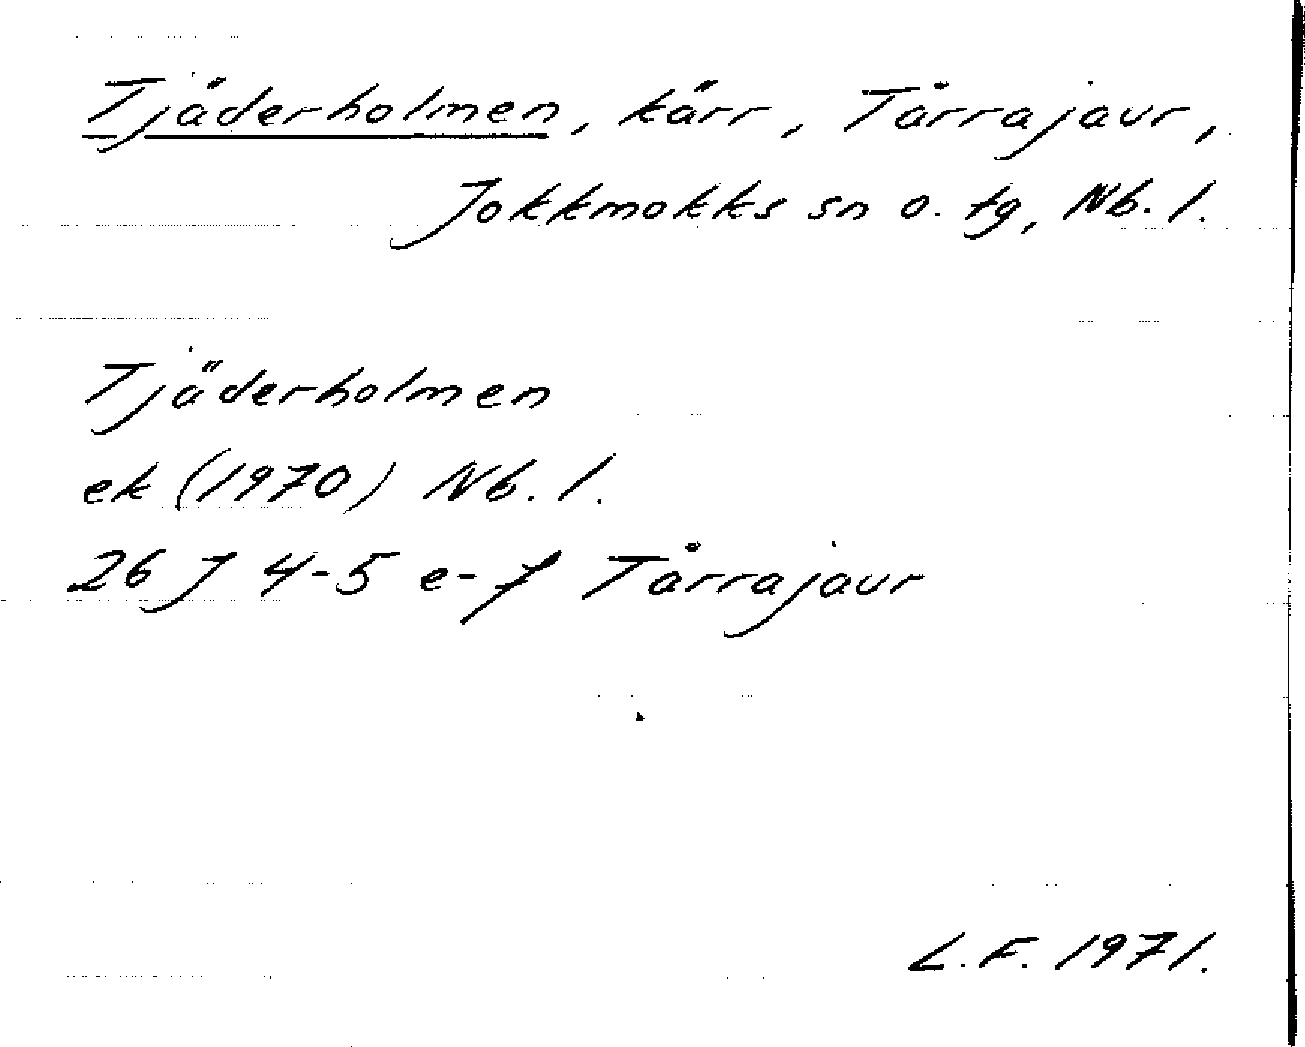 Tjäderholmen, kärr, Tårrajaur,
Jokkmokks sn o. tg, Nb. l.
Tjäderholmen
ek (1970) Nb. l.
26 J 4-5 e-f Tårrajaur
L.F. 1971.